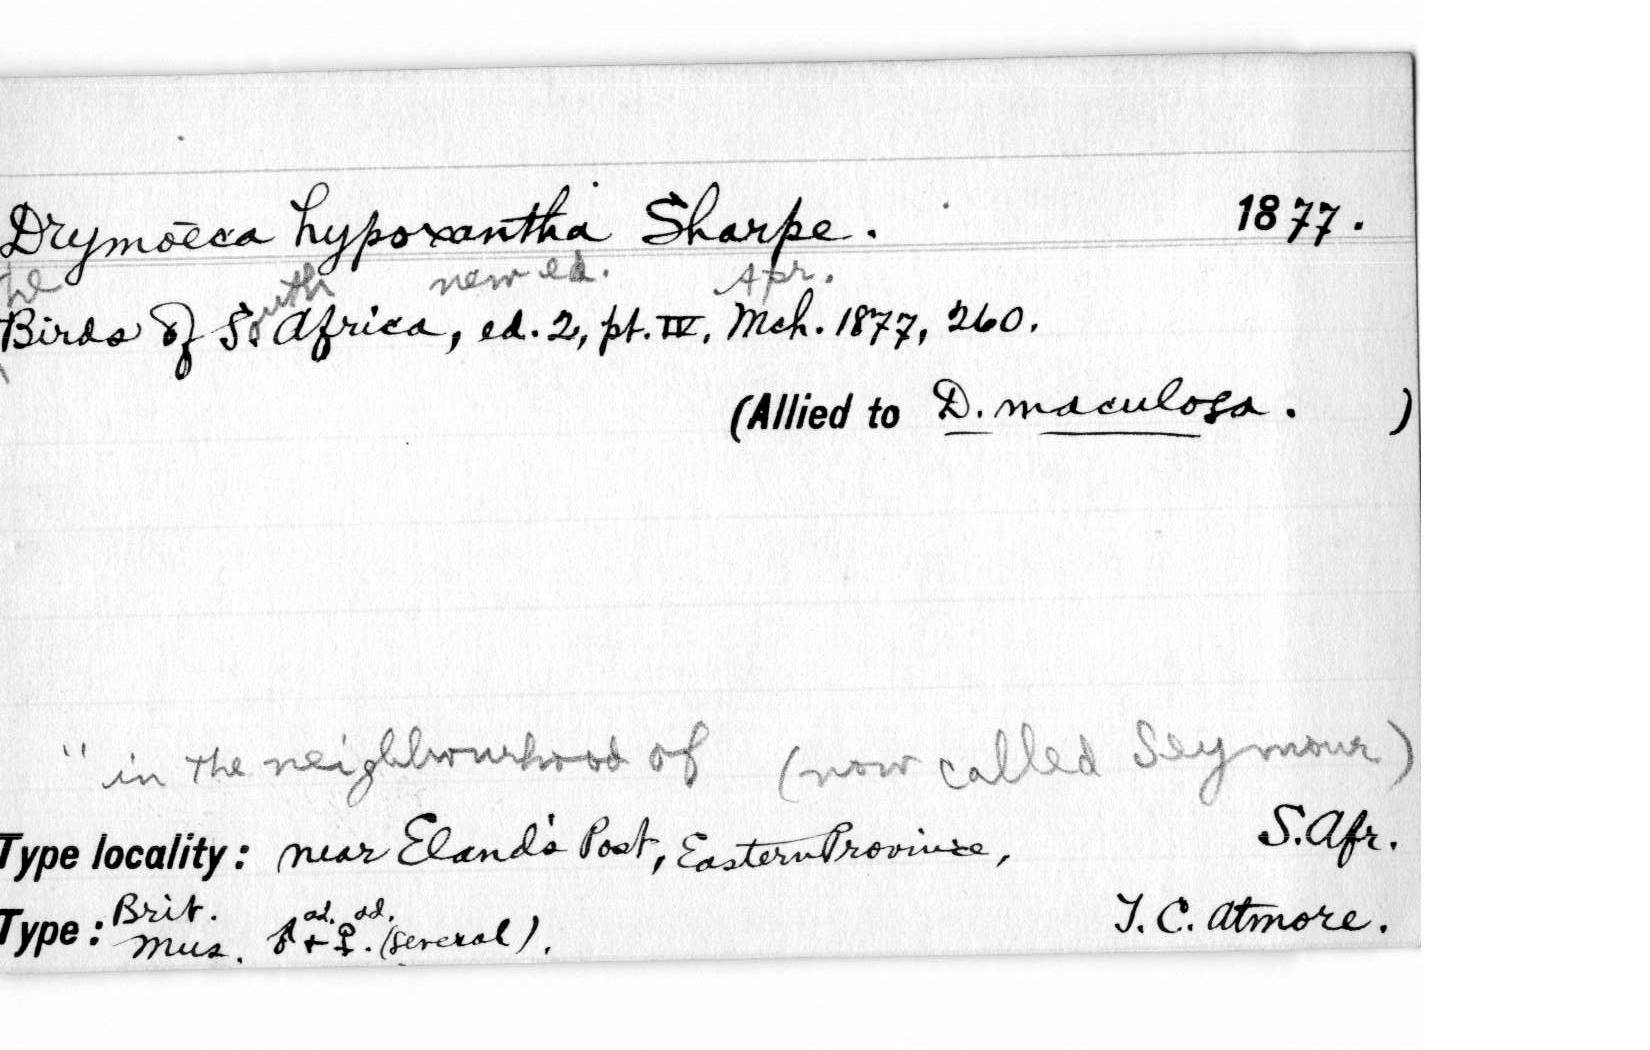 Drymoeca hypoxantha Sharpe. 1877.
he new ed. Apr.
Birds of South Africa, ed. 2, pt. IV, Mch. 1877, 260.
(Allied to D. maculosa. )
" in the neighbourhood of (now called Seymour)
Type locality: near Eland's Post, Eastern Province, S. Afr.
Type: Brit. Mus. ♂ ad. + ♀ ad. (several). T. C. Atmore.